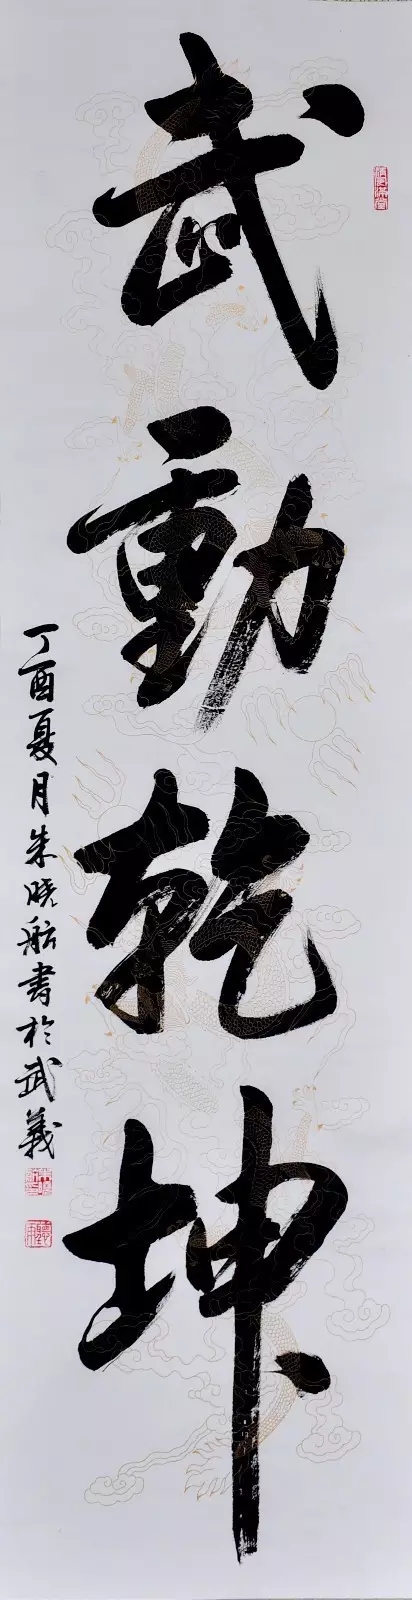 武動乾坤
丁酉夏月朱晓航書於武義